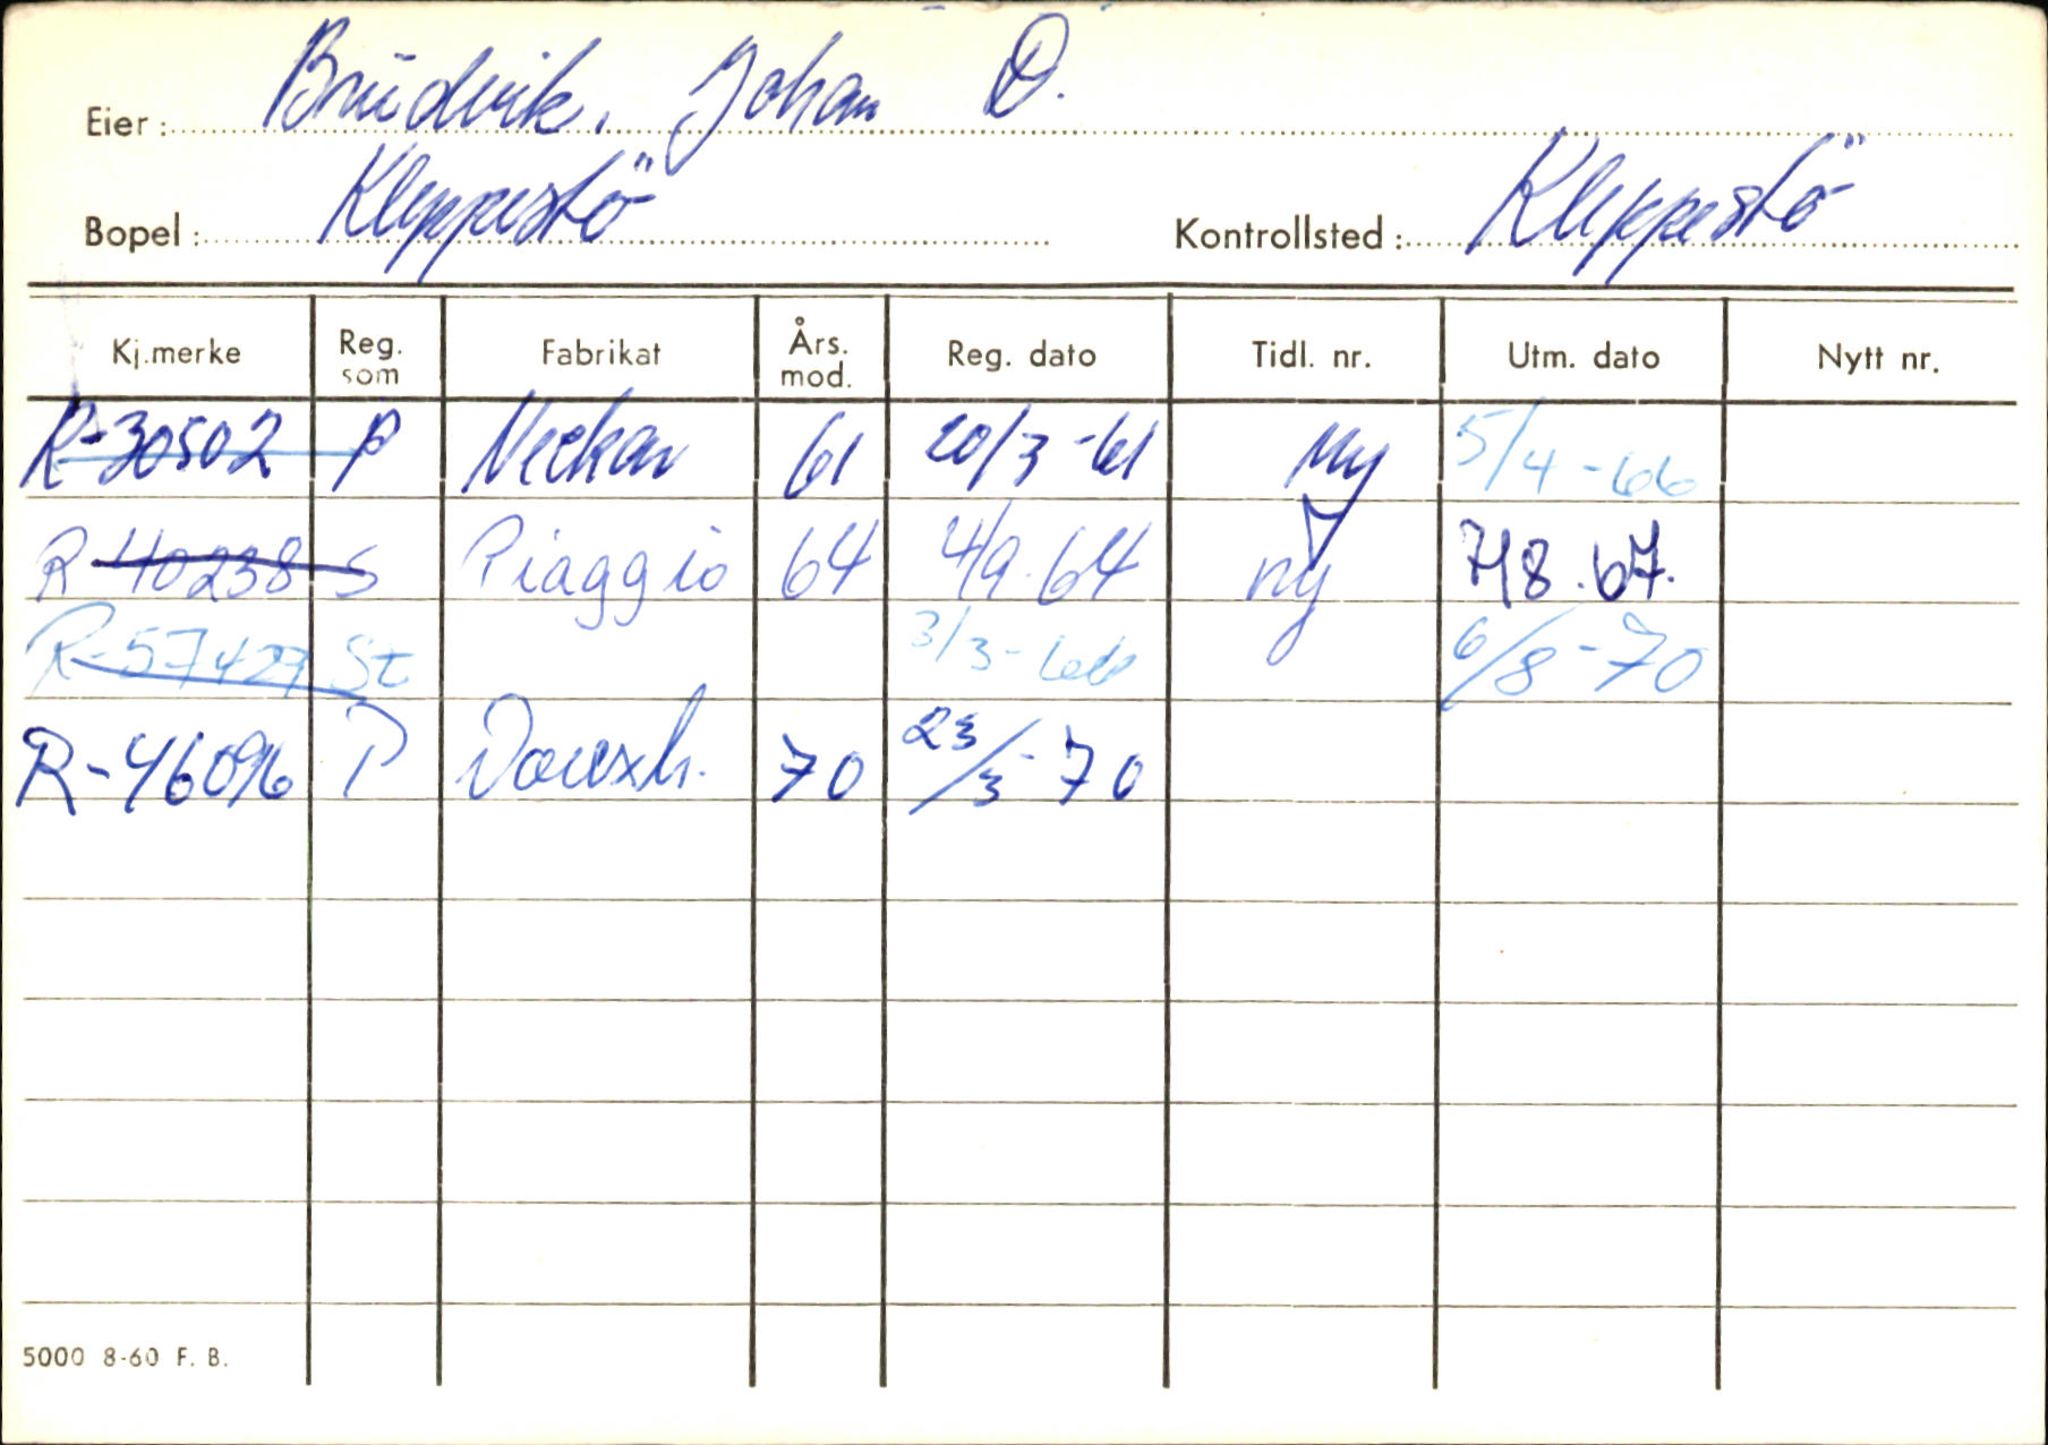 Eier: Brüdvik, Johan Ø.
Bopel: Kleppestö Kontrollsted: Kleppestö
Kj.merke Reg. som Fabrikat Års. mod. Reg. dato Tidl. nr. Utm. dato Nytt nr.
R-30502 P Neckar 61 20/3-61 Ny 5/4-66
R-40238 S Piaggio 64 4/9.64 ny 7/8.67.
R-57427 St 3/3-66 6/8-70
R-46096 P Vauxh. 70 23/3-70
5000 8-60 F. B.